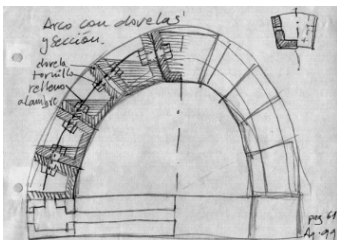 Arco con dovelas
y sección.
dovela
tornillo
relleno
alambre
pag 61
Ag. 99